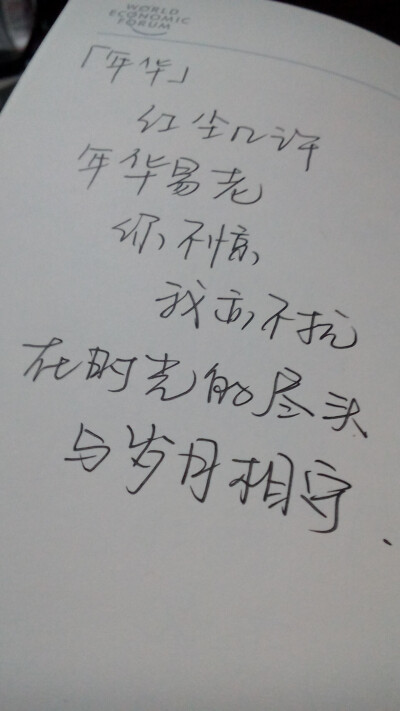 WORLD
ECONOMIC
FORUM
「年华」
红尘几许
年华易老
你不惊
我亦不扰
在时光的尽头
与岁月相守.